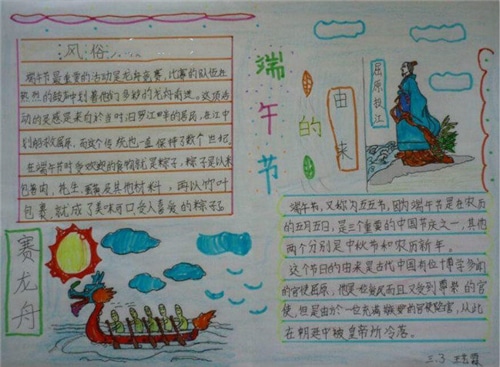 风俗
端午节最重要的活动是龙舟竞赛,比赛的队伍在
热烈的鼓声中划着他们多彩的龙舟前进。这项活
动的灵感是来自于当时汨罗江畔的居民,在江中
划船救屈原,而这个传统也一直保持了数个世纪。
在端午节时受欢迎的食物就是粽子,粽子是以米
包着肉、花生、蛋黄及其他材料,再以竹叶
包裹,就成了美味可口,令人喜爱的粽子。
赛龙舟
端午节
的
由来
屈原投江
端午节,又称为五五节,因为端午节是在农历
的五月五日,是三个重要的中国节庆之一,其他
两个分别是中秋节和农历新年。
这个节日的由来是古代中国有位博学多闻
的官吏屈原,他是位爱民而且又受到尊崇的官
吏,但是由于一位充满嫉妒的官吏陷害,从此
在朝廷中被皇帝所冷落。
三.3